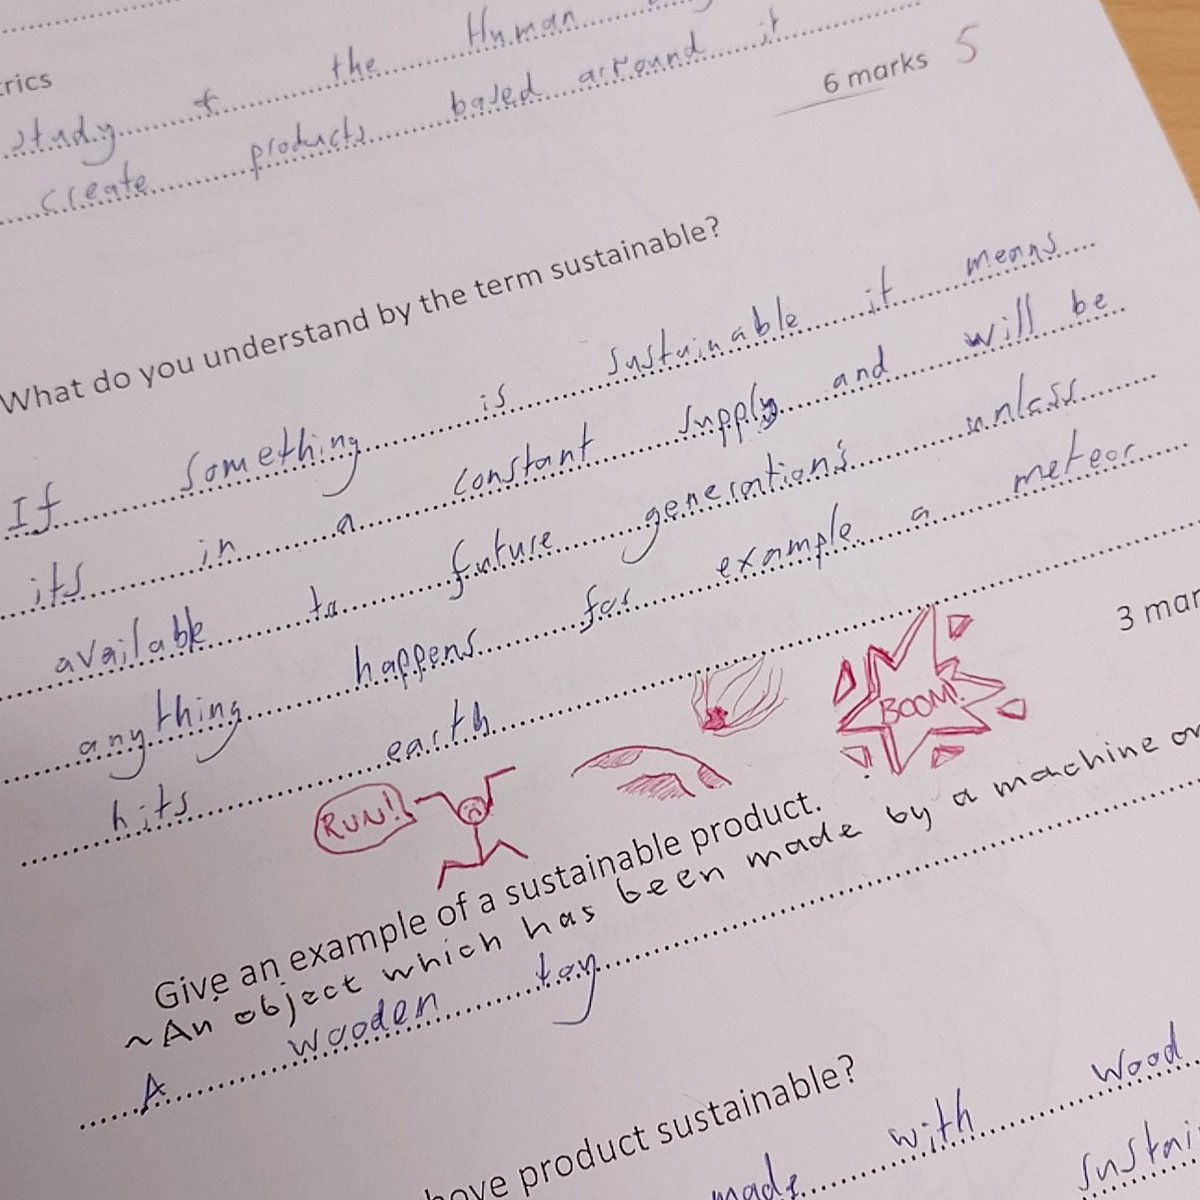 rics
study of the Human
create products based arround it
6 marks 5
What do you understand by the term sustainable?
If something is sustainable it means
its in a constant supply and will be
available to future generations unless
anything happens for example a meteor
hits earth
3 mar
BOOM!
RUN!
Give an example of a sustainable product.
~An object which has been made by a machine or
A wooden toy
bove product sustainable?
made with wood
sustai